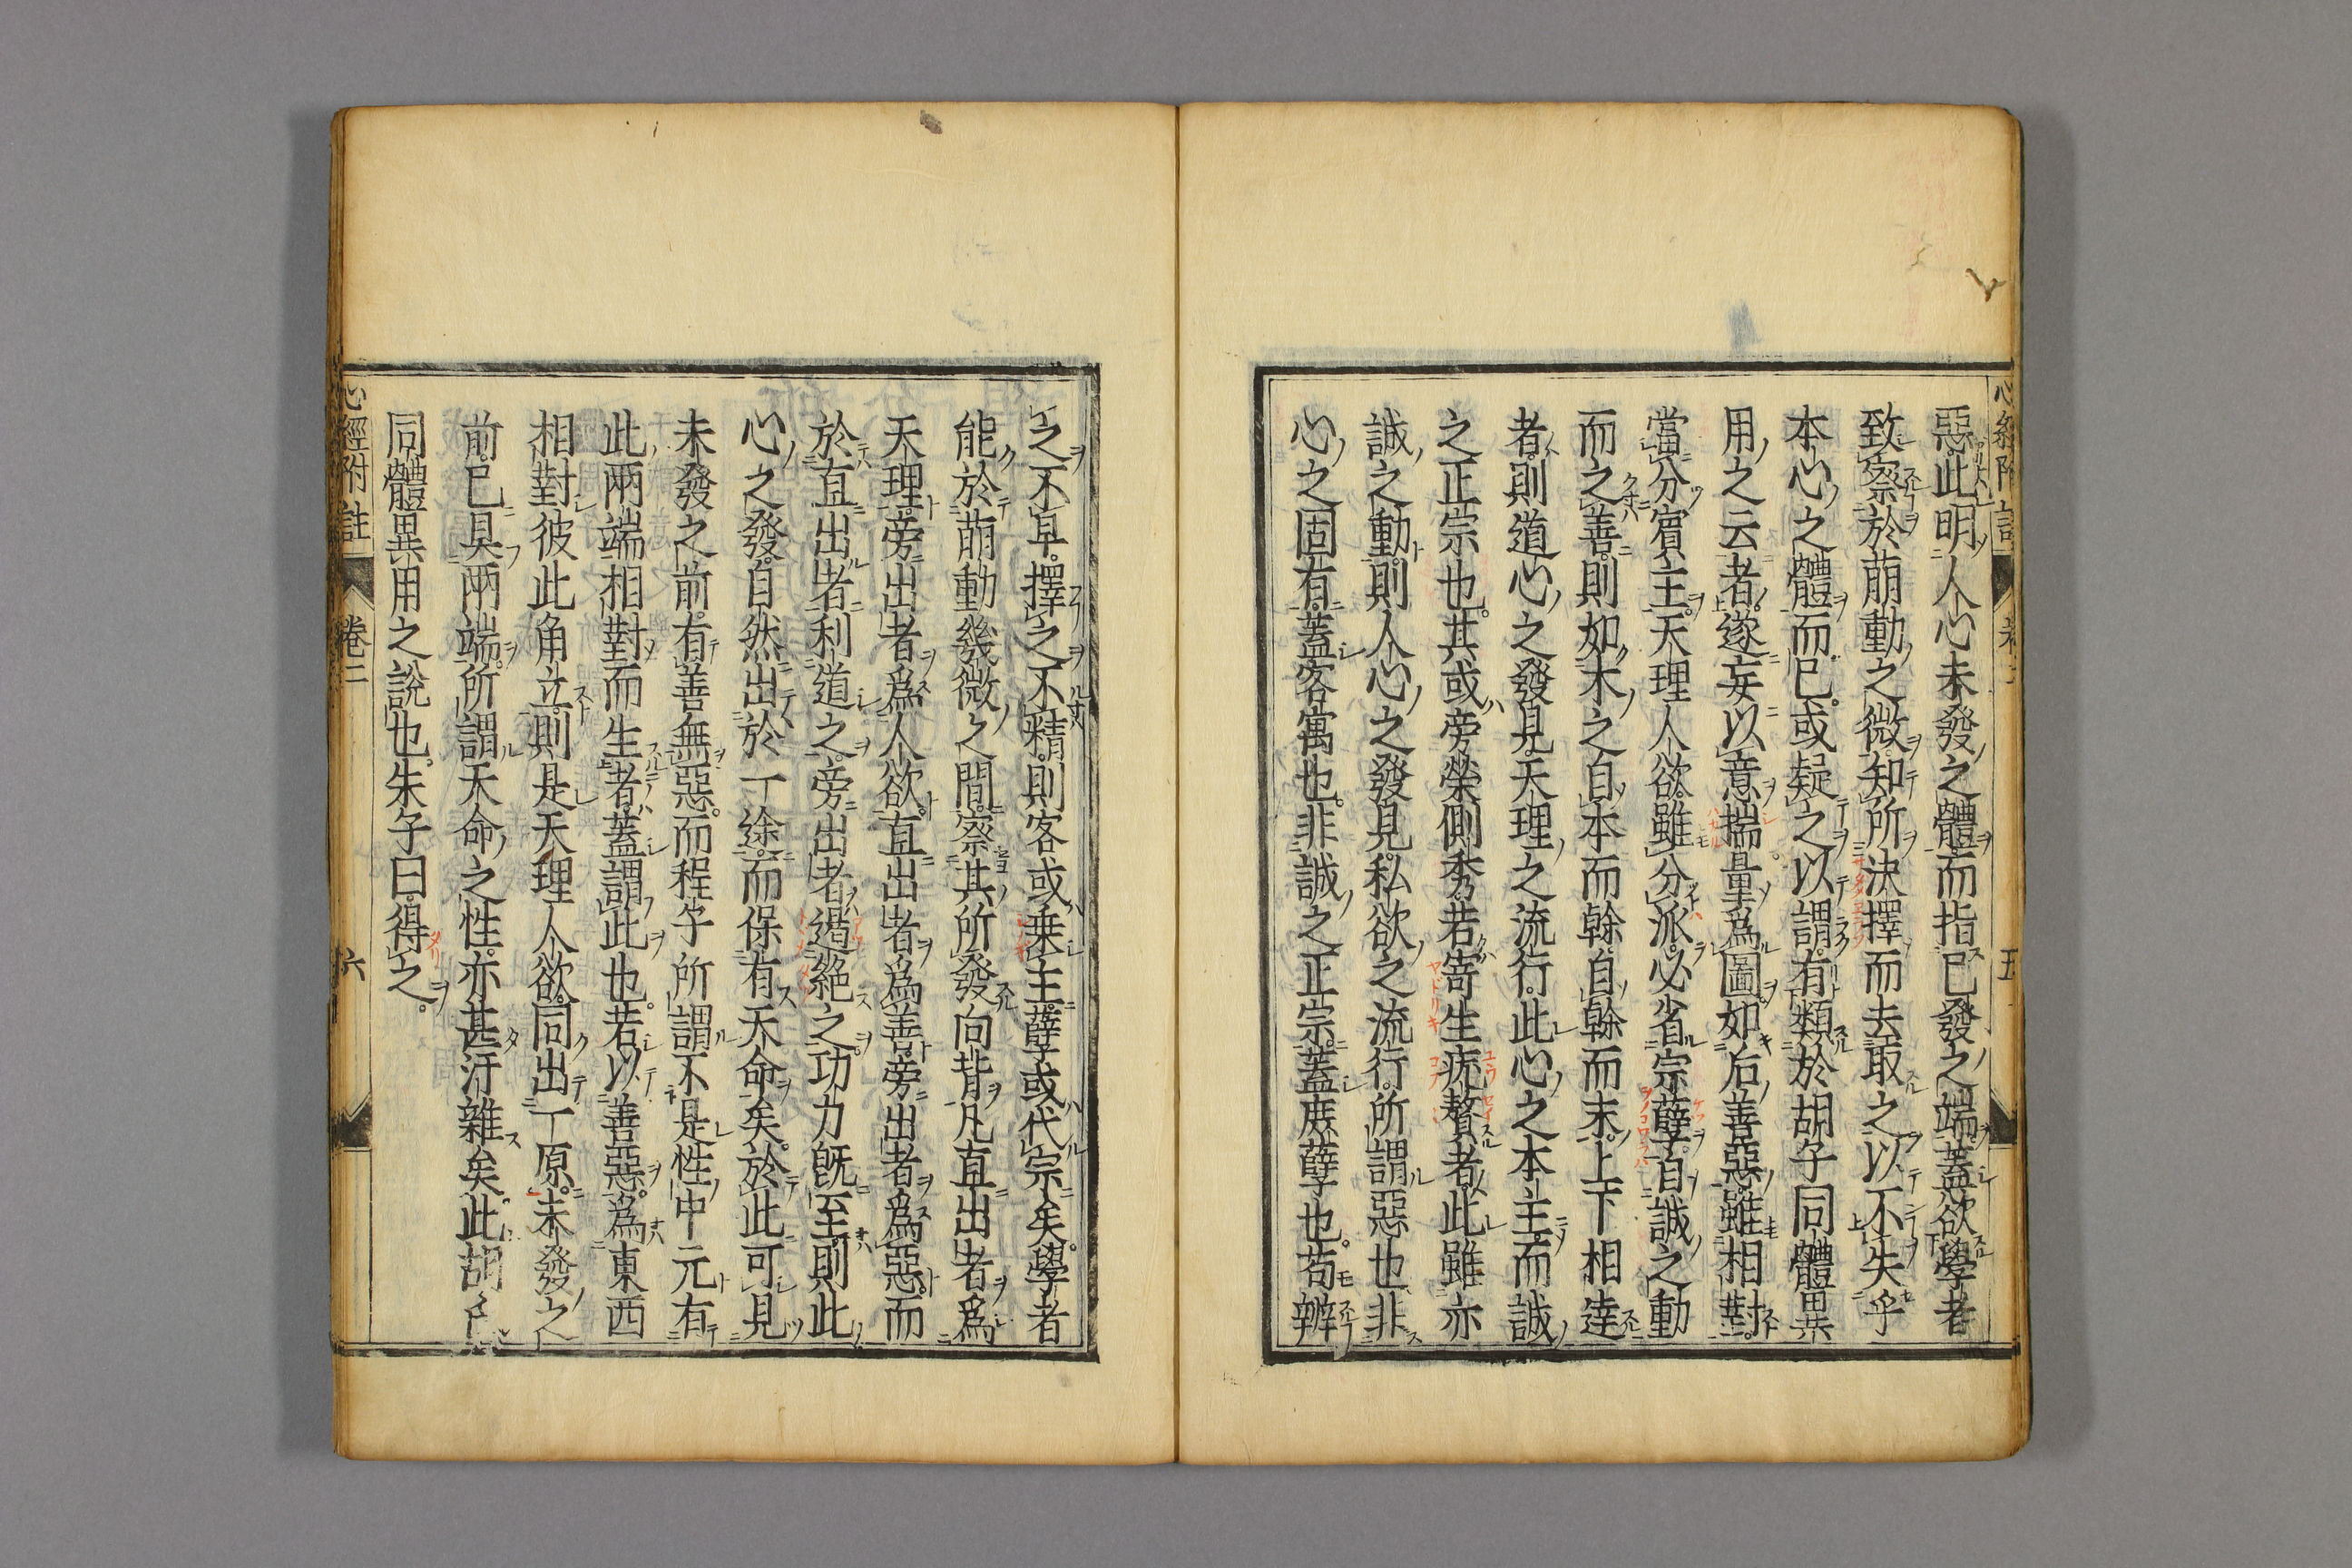 惡此明人心未發之體而指已發之端蓋欲學者
致察於萠動之微知所決擇而去取之以不失乎
本心之體而已或疑之以謂有類於胡子同體異
用之云者遂妄以意揣量爲圖如后善惡雖相對
當分賓主天理人欲雖分派必省宗孽自誠之動
而之善則如木之自本而幹自幹而末上下相達
者則道心之發見天理之流行此心之本主而誠
之正宗也其或旁榮側秀若寄生疣贅者此雖亦
誠之動則人心之發見私欲之流行所謂惡也非
心之固有蓋客寓也非誠之正宗蓋庶孽也苟辨
之不早擇之不精則客或乗主孽或代宗矣學者
能於萠動幾微之間察其所發向背凡直出者爲
天理旁出者爲人欲直出者爲善旁出者爲惡而
於直出者利道之旁出者遏絶之功力旣至則此
心之發自然出於一途而保有天命矣於此可見
未發之前有善無惡而程子所謂不是性中元有
此兩端相對而生者蓋謂此也若以善惡爲東西
相對彼此角立則是天理人欲同出一原未發之
前已具兩端所謂天命之性亦甚汙雜矣此胡
同體異用之說也朱子曰得之
心經附註 卷二 六